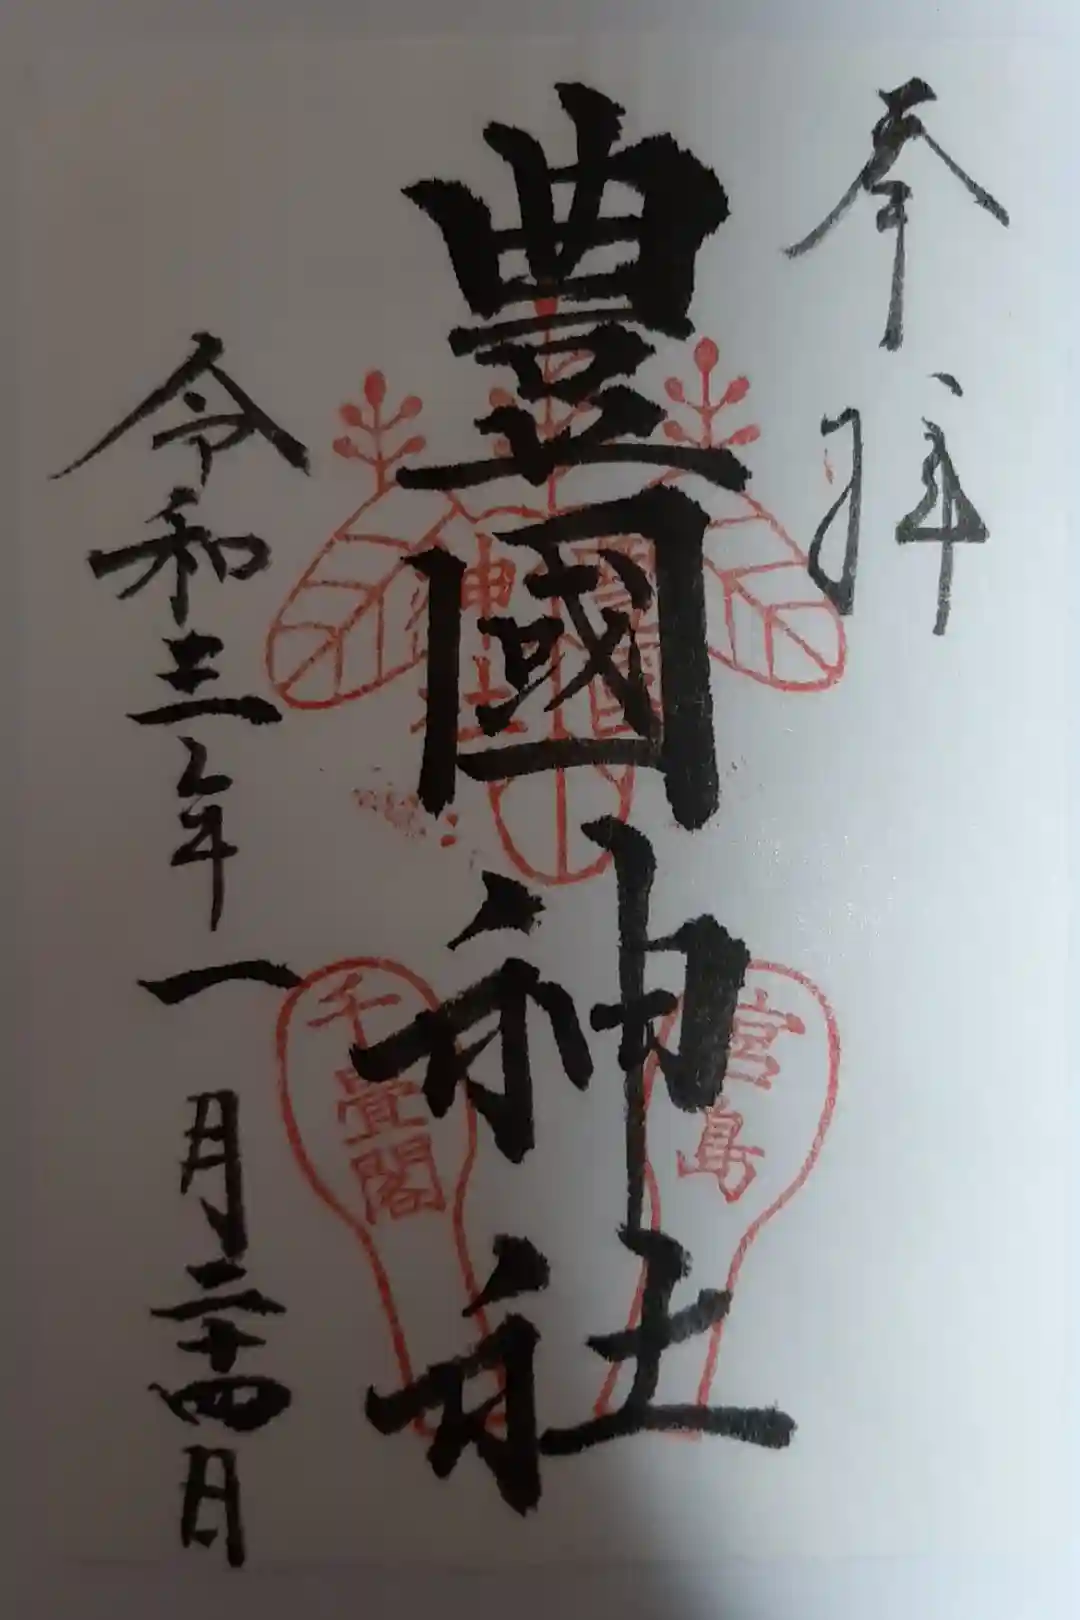 奉拝
豊國神社
豊國
神社
宮島
千畳閣
令和三年一月二十四日